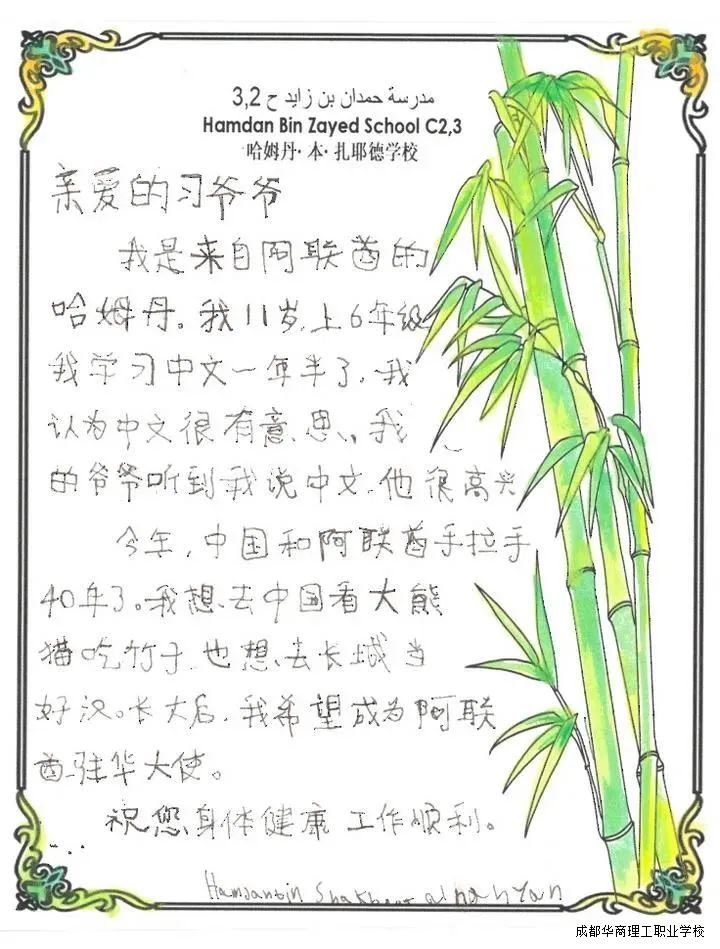 مدرسة حمدان بن زايد ح 3,2
Hamdan Bin Zayed School C2,3
哈姆丹·本·扎耶德学校
亲爱的习爷爷
我是来自阿联酋的
哈姆丹。我11岁,上6年级
我学习中文一年半了,我
认为中文很有意思,我
的爷爷听到我说中文,他很高兴
今年,中国和阿联酋手拉手
40年了。我想去中国看大熊
猫吃竹子,也想去长城当
好汉。长大后,我希望成为阿联
酋驻华大使。
祝您身体健康 工作顺利。
...
Hamdan bin
成都华商理工职业学校